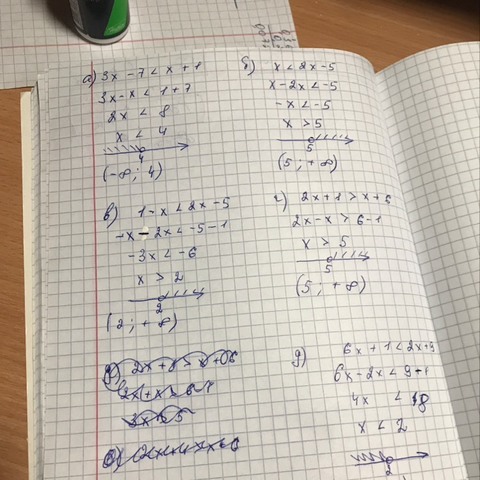 а) 3x - 7 < x + 1
3x - x < 1 + 7
2x < 8
x < 4
4
(-∞; 4)
б) x < 2x - 5
x - 2x < -5
-x < -5
x > 5
5
(5; +∞)
в) 1 - x < 2x - 5
-x - 2x < -5 - 1
-3x < -6
x > 2
2
(2; +∞)
г) 2x + 1 > x + 6
2x - x > 6 - 1
x > 5
5
(5; +∞)
д) 6x + 1 < 2x + 9
6x - 2x < 9 - 1
4x < 8
x < 2
2